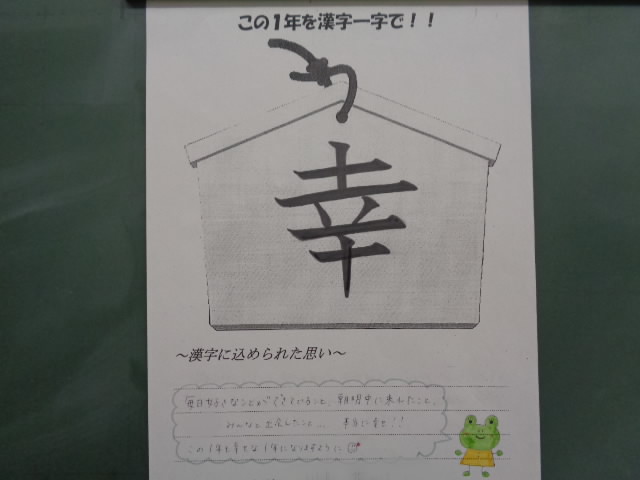 この1年を漢字一字で！！
幸
～漢字に込められた思い～
毎日好きなことができていること、朝明中に来れたこと、
みんなと出会えたこと… 本当に幸せ！！
この1年も幸せな1年になりますように